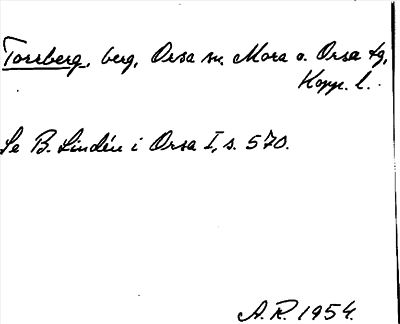 Torrberg, berg, Orsa sn, Mora o. Orsa tg,
Kopp. l.
Se B. Lindén i Orsa I, s. 570.
A. R. 1954.